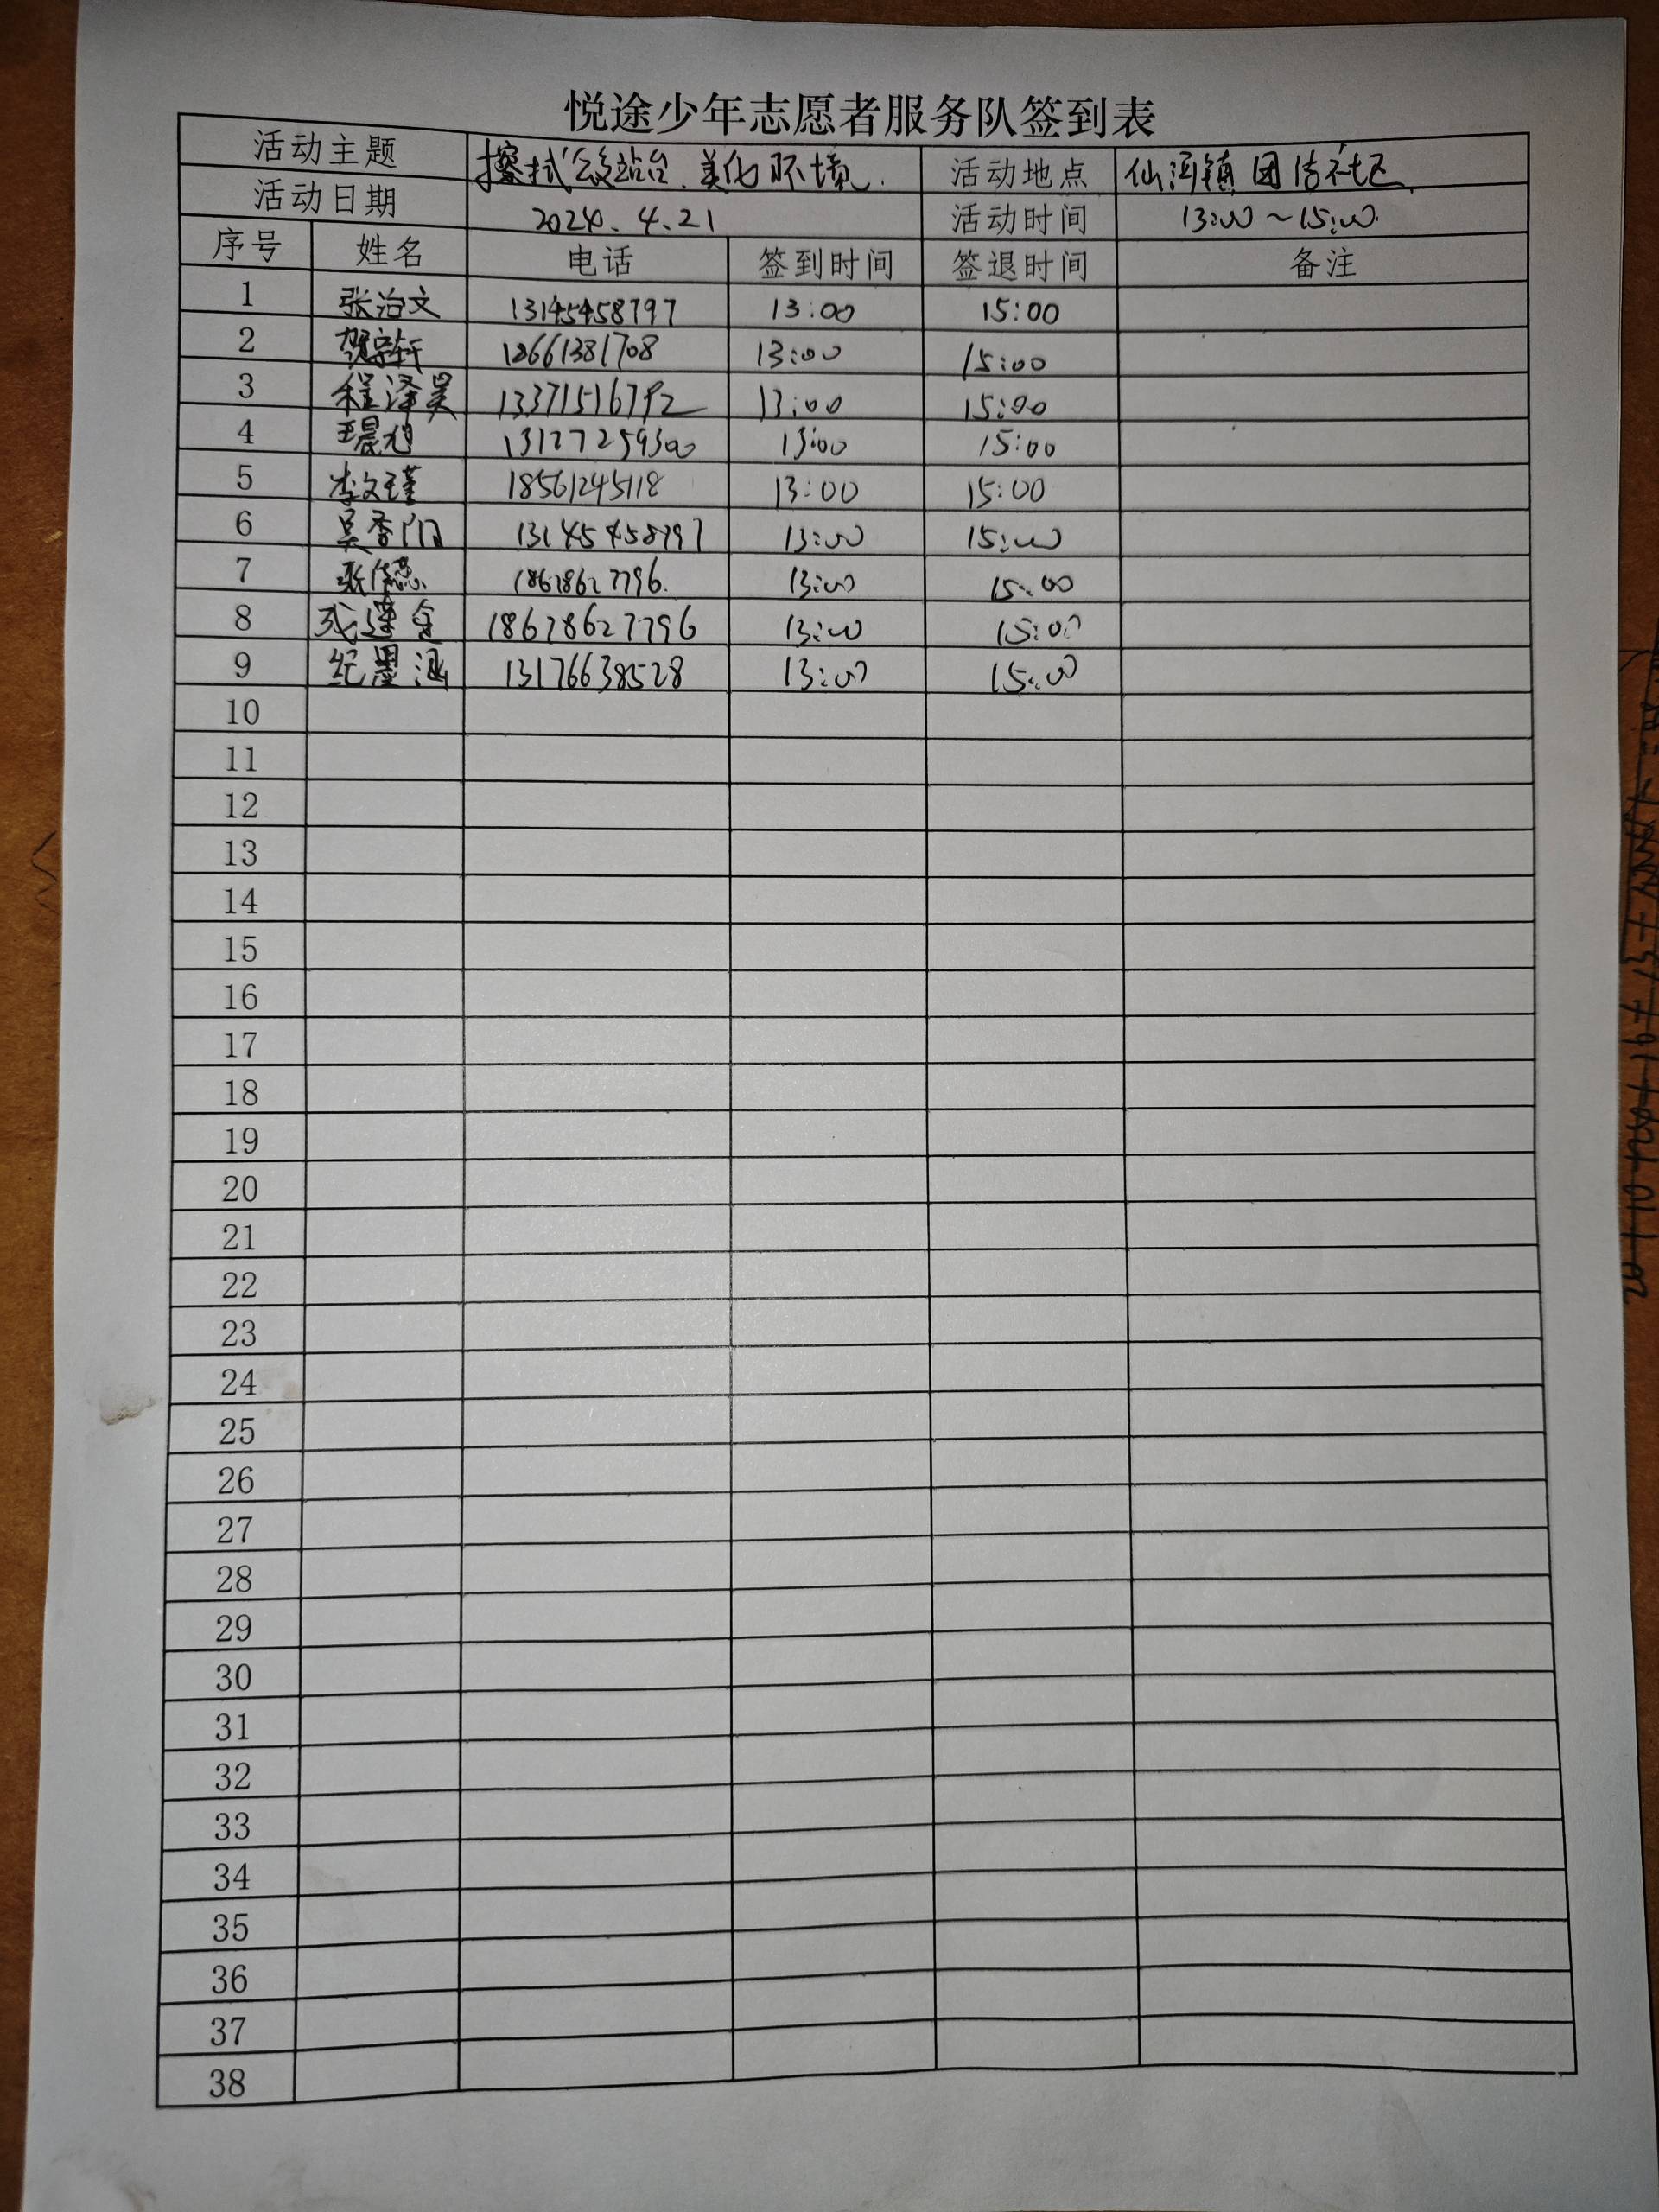 悦途少年志愿者服务队签到表
活动主题 擦拭公交站台、美化环境. 活动地点 仙河镇团洁社区
活动日期 2024.4.21 活动时间 13:00~15:00
序号 姓名 电话 签到时间 签退时间 备注
1 张治文 13145458797 13:00 15:00
2 贺宗轩 12661381708 13:00 15:00
3 程泽昊 13371516792 13:00 15:00
4 王晨旭 13127259300 13:00 15:00
5 李文瑾 18561245118 13:00 15:00
6 吴香阳 13145458797 13:00 15:00
7 18678627796. 13:00 15:00
8 18678627796 13:00 15:00
9 纪墨涵 13176638528 13:00 15:00
10
11
12
13
14
15
16
17
18
19
20
21
22
23
24
25
26
27
28
29
30
31
32
33
34
35
36
37
38